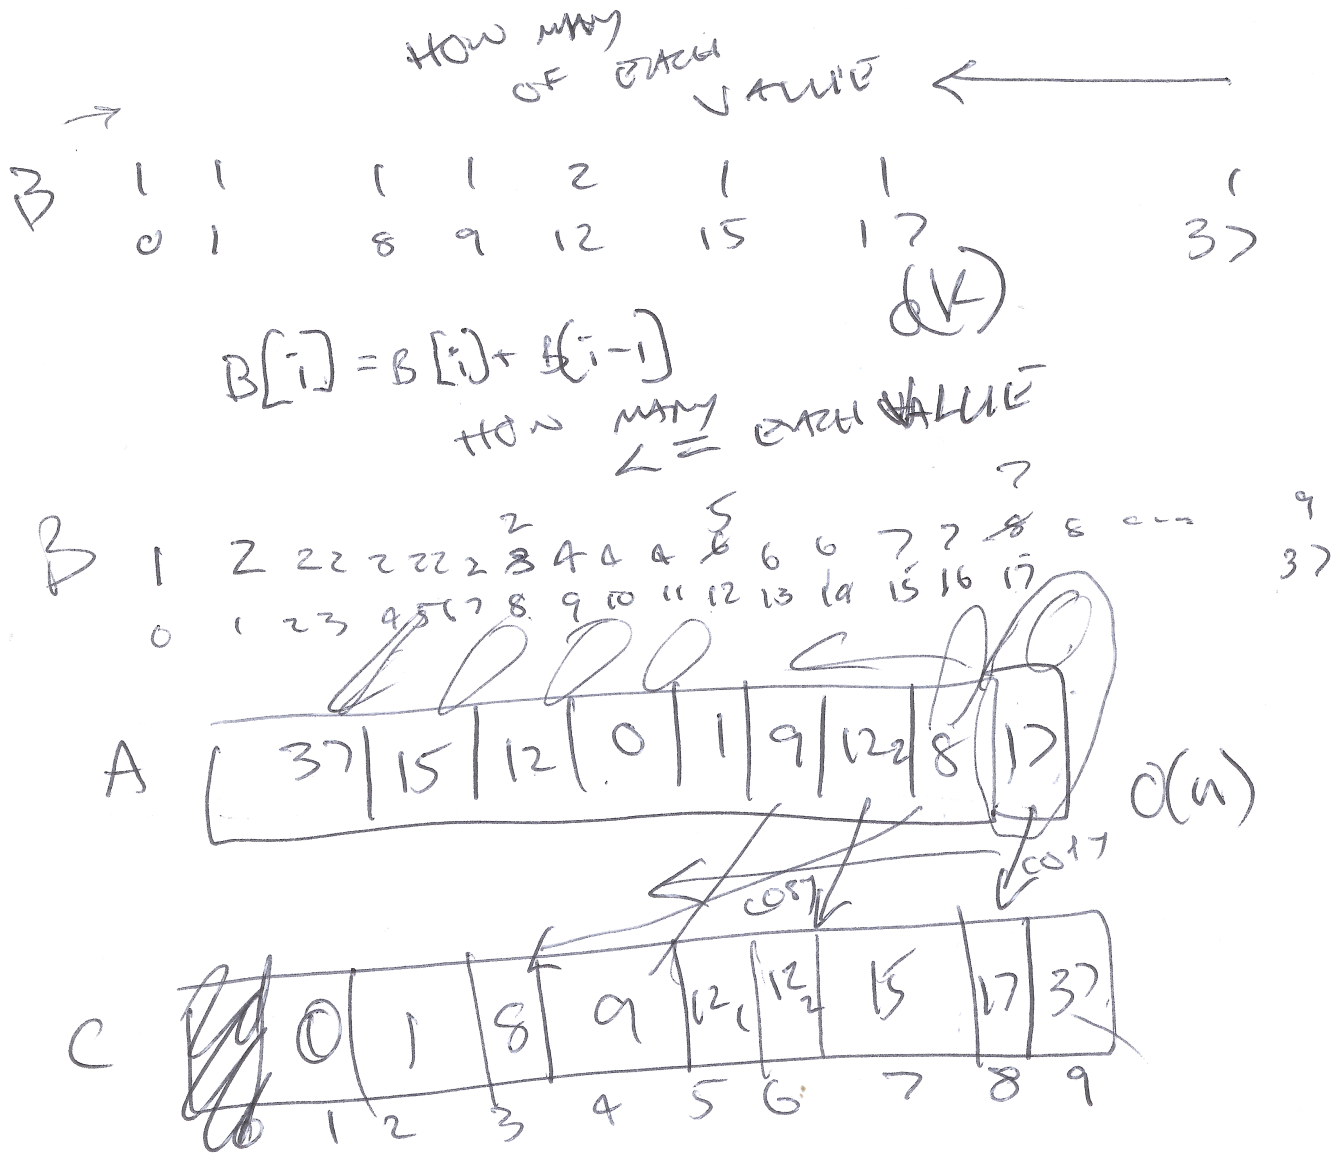 HOW MANY
OF EACH
VALUE
B 1 1 1 1 2 1 1 1
0 1 8 9 12 15 17 37
O(K)
B[i] = B[i] + B[i-1]
HOW MANY EACH VALUE
<=
2 5 7
B 1 2 2 2 2 2 2 2 3 4 4 4 6 6 6 7 7 8 8 --- 9
0 1 2 3 4 5 6 7 8 9 10 11 12 13 14 15 16 17 37
A 37 15 12 0 1 9 12 2 8 17 O(n)
COPY
COPY
C 0 1 8 9 12 1 12 2 15 17 37
0 1 2 3 4 5 6 7 8 9